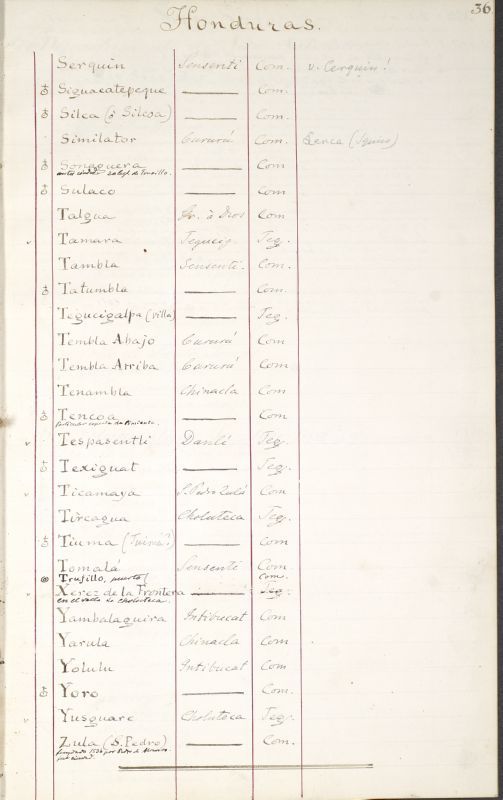 36
Honduras.
Serquin Sensenti Com. v. Cerquin!
♁ Siguacatepeque —— Com.
♁ Silca (ó Silcoa) —— Com.
Similator Cururú Com. Lerca
♁ Sonaguera —— Com
♁ Sulaco —— Com
Talgua Gr. à Dios Com
v Tamara Tegucig. Teg.
Tambla Sensenti. Com.
♁ Tatumbla —— Com.
Tegucigalpa (villa) —— Teg.
Tembla Abajo Cururú Com
Tembla Arriba Cururú Com
Tenambla Chinacla Com
♁ Tencoa —— Com
v Tespasentli Danlí Teg.
♁ Texiguat —— Teg.
v Ticamaya S. Pedro Zula Com
Tircagua Choluteca Teg.
♁ Tiuma —— Com
Tomalá Sensenti Com
Trujillo, puerto Com.
v Xerez de la Frontera —— Teg.
en el valle de Choluteca.
Yambalaguira Intibucat Com
Yarula Chinacla Com
Yolulu Intibucat Com
♁ Yoro —— Com.
v Yusguare Choluteca Teg.
Zula (S. Pedro) —— Com.
fundada 1536 por Pedro de Alvarado